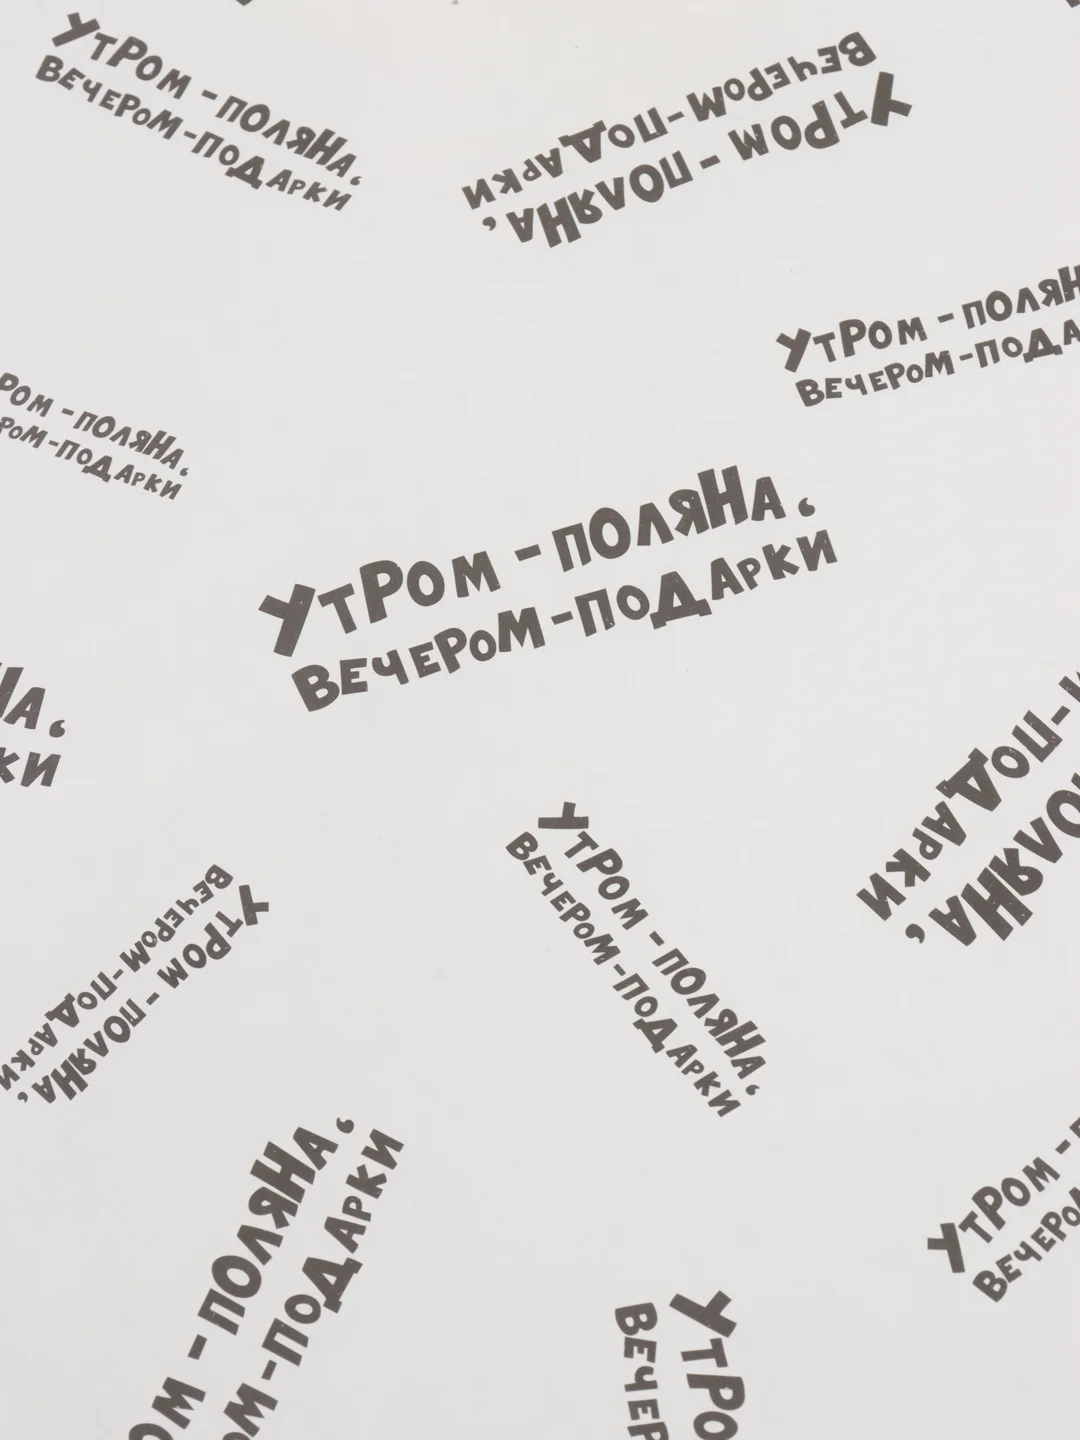 УТРОМ - ПОЛЯНА,
ВЕЧЕРОМ-ПОДАРКИ
УТРОМ - ПОЛЯНА,
ВЕЧЕРОМ-ПОДАРКИ
УТРОМ - ПОЛЯН
ВЕЧЕРОМ-ПОДА
РОМ - ПОЛЯНА,
РОМ-ПОДАРКИ
УТРОМ - ПОЛЯНА,
ВЕЧЕРОМ-ПОДАРКИ
НА,
КИ
М-ПОДАРКИ
ОЛЯНА,
УТРОМ - ПОЛЯНА,
ВЕЧЕРОМ-ПОДАРКИ
УТРОМ - ПОЛЯНА,
ВЕЧЕРОМ-ПОДАРКИ
ОМ - ПОЛЯНА,
ОМ-ПОДАРКИ
УТРОМ - П
ВЕЧЕРО
УТРО
ВЕЧЕР